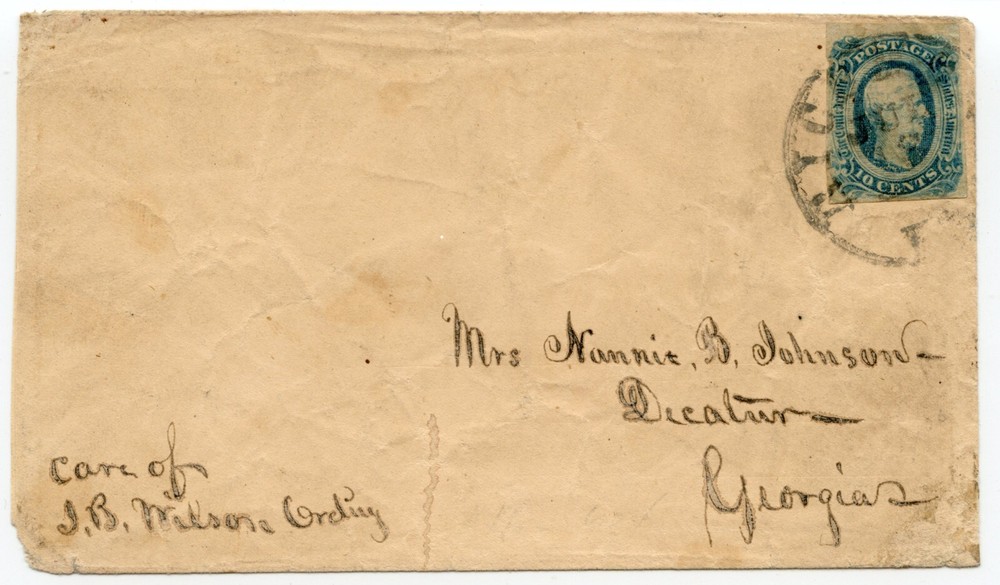 POSTAGE
The Confederate States of America
10 CENTS
Mrs Nannie, B. Johnson
Decatur
Georgia
care of
J. B. Wilson